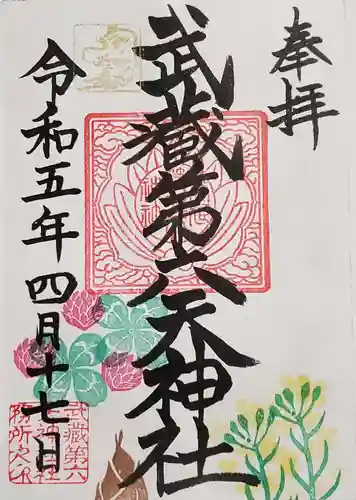 奉拝
武蔵第六天神社
令和五年四月十七日
武蔵第六
天神社
務所之印